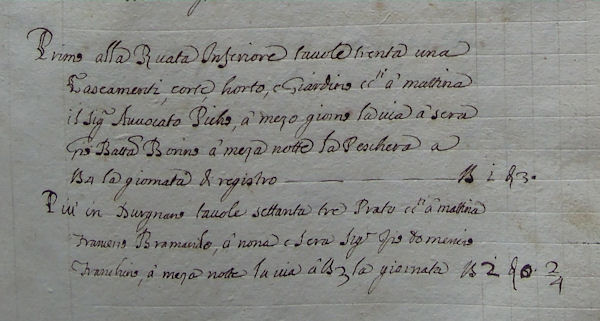 Primo alla Ruata Inferiore tavole trenta una
Casamenti, corte horto, e Giardino cti à mattina
il Sigr Avvocato Piche, à mezo giorno la via à sera
Gio Batta Bonino à meza notte la Peschera a
la giornata di registro
Piu' in tavole settanta tre Prato cti à mattina
à nona e sera Sigr Gio Domenico
Franchino, à meza notte la via à la giornata